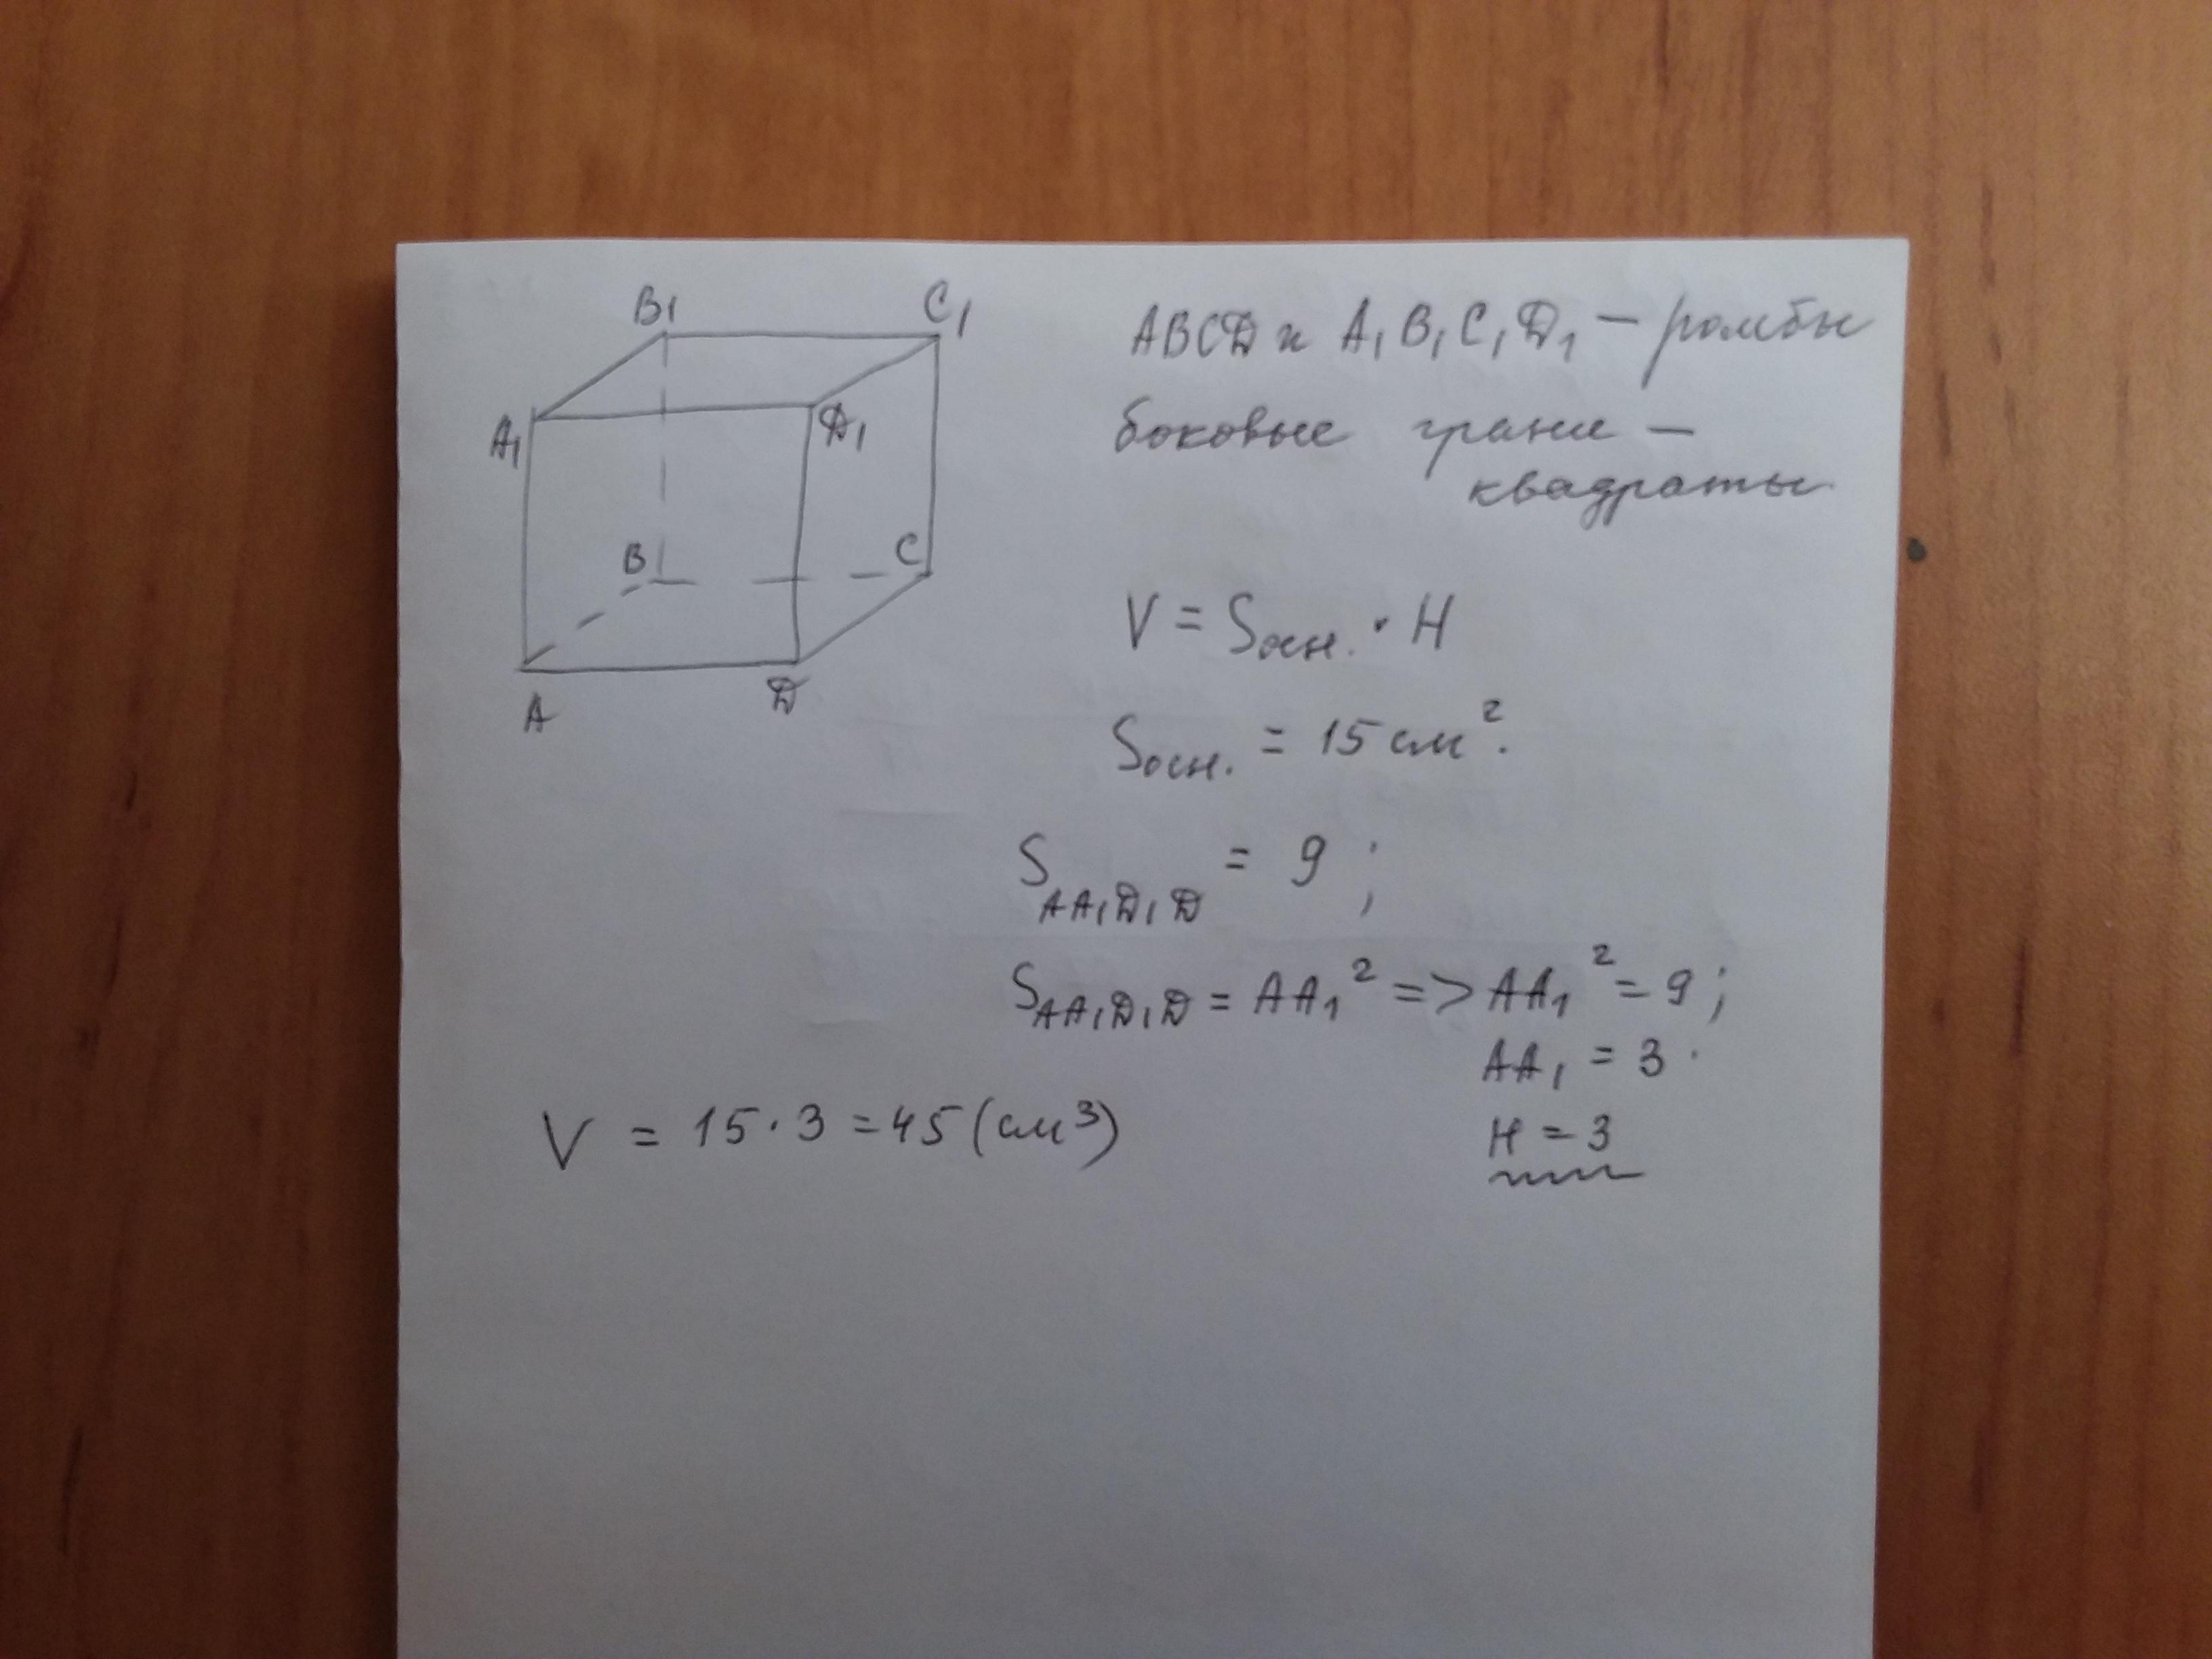 B₁ C₁
A₁ D₁
B C
A D
ABCD и A₁B₁C₁D₁ – ромбы
боковые грани –
квадраты.
V = Sосн. · H
Sосн. = 15 см².
S_AA₁D₁D = 9 ;
S_AA₁D₁D = AA₁² => AA₁² = 9 ;
AA₁ = 3 .
H = 3
V = 15 · 3 = 45 (см³)